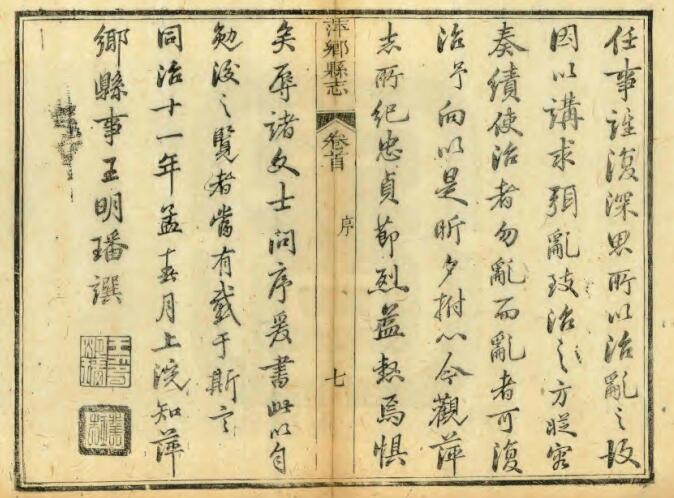 任事誰復深思所以治亂之故
因以講求弭亂致治之方從容
奏績使治者勿亂而亂者可復
治予向以是昕夕拊心今觀萍
志所紀忠貞節烈益愁焉惧
萍鄉縣志
卷首
序
七
矣辱諸文士問序爰書此以自
勉後之覽者當有感于斯言
同治十一年孟春月上浣知萍
鄉縣事王明璠譔